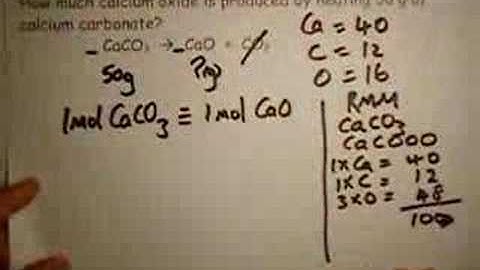 How much calcium oxide is produced by heating 50 g of
calcium carbonate?
_ CaCO₃ → _ CaO + CO₂
50g ?(g)
1 mol CaCO₃ ≡ 1 mol CaO
Ca = 40
C = 12
O = 16
RMM
CaCO₃
CaCOOO
1 x Ca = 40
1 x C = 12
3 x O = 48
100